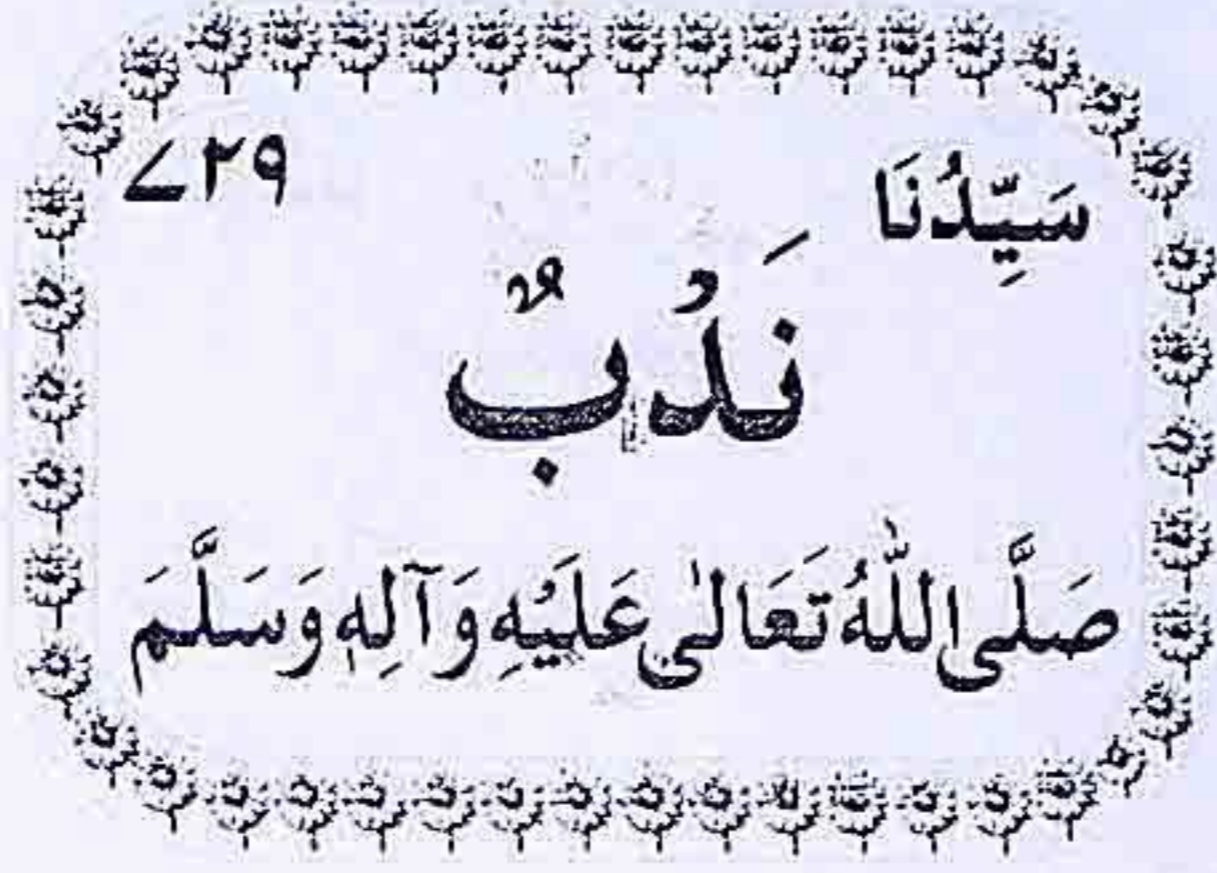 سَيِّدُنَا ۷۲۹
نَدْبٌ
صَلَّى اللّٰهُ تَعَالٰى عَلَيْهِ وَآلِهٖ وَسَلَّمَ